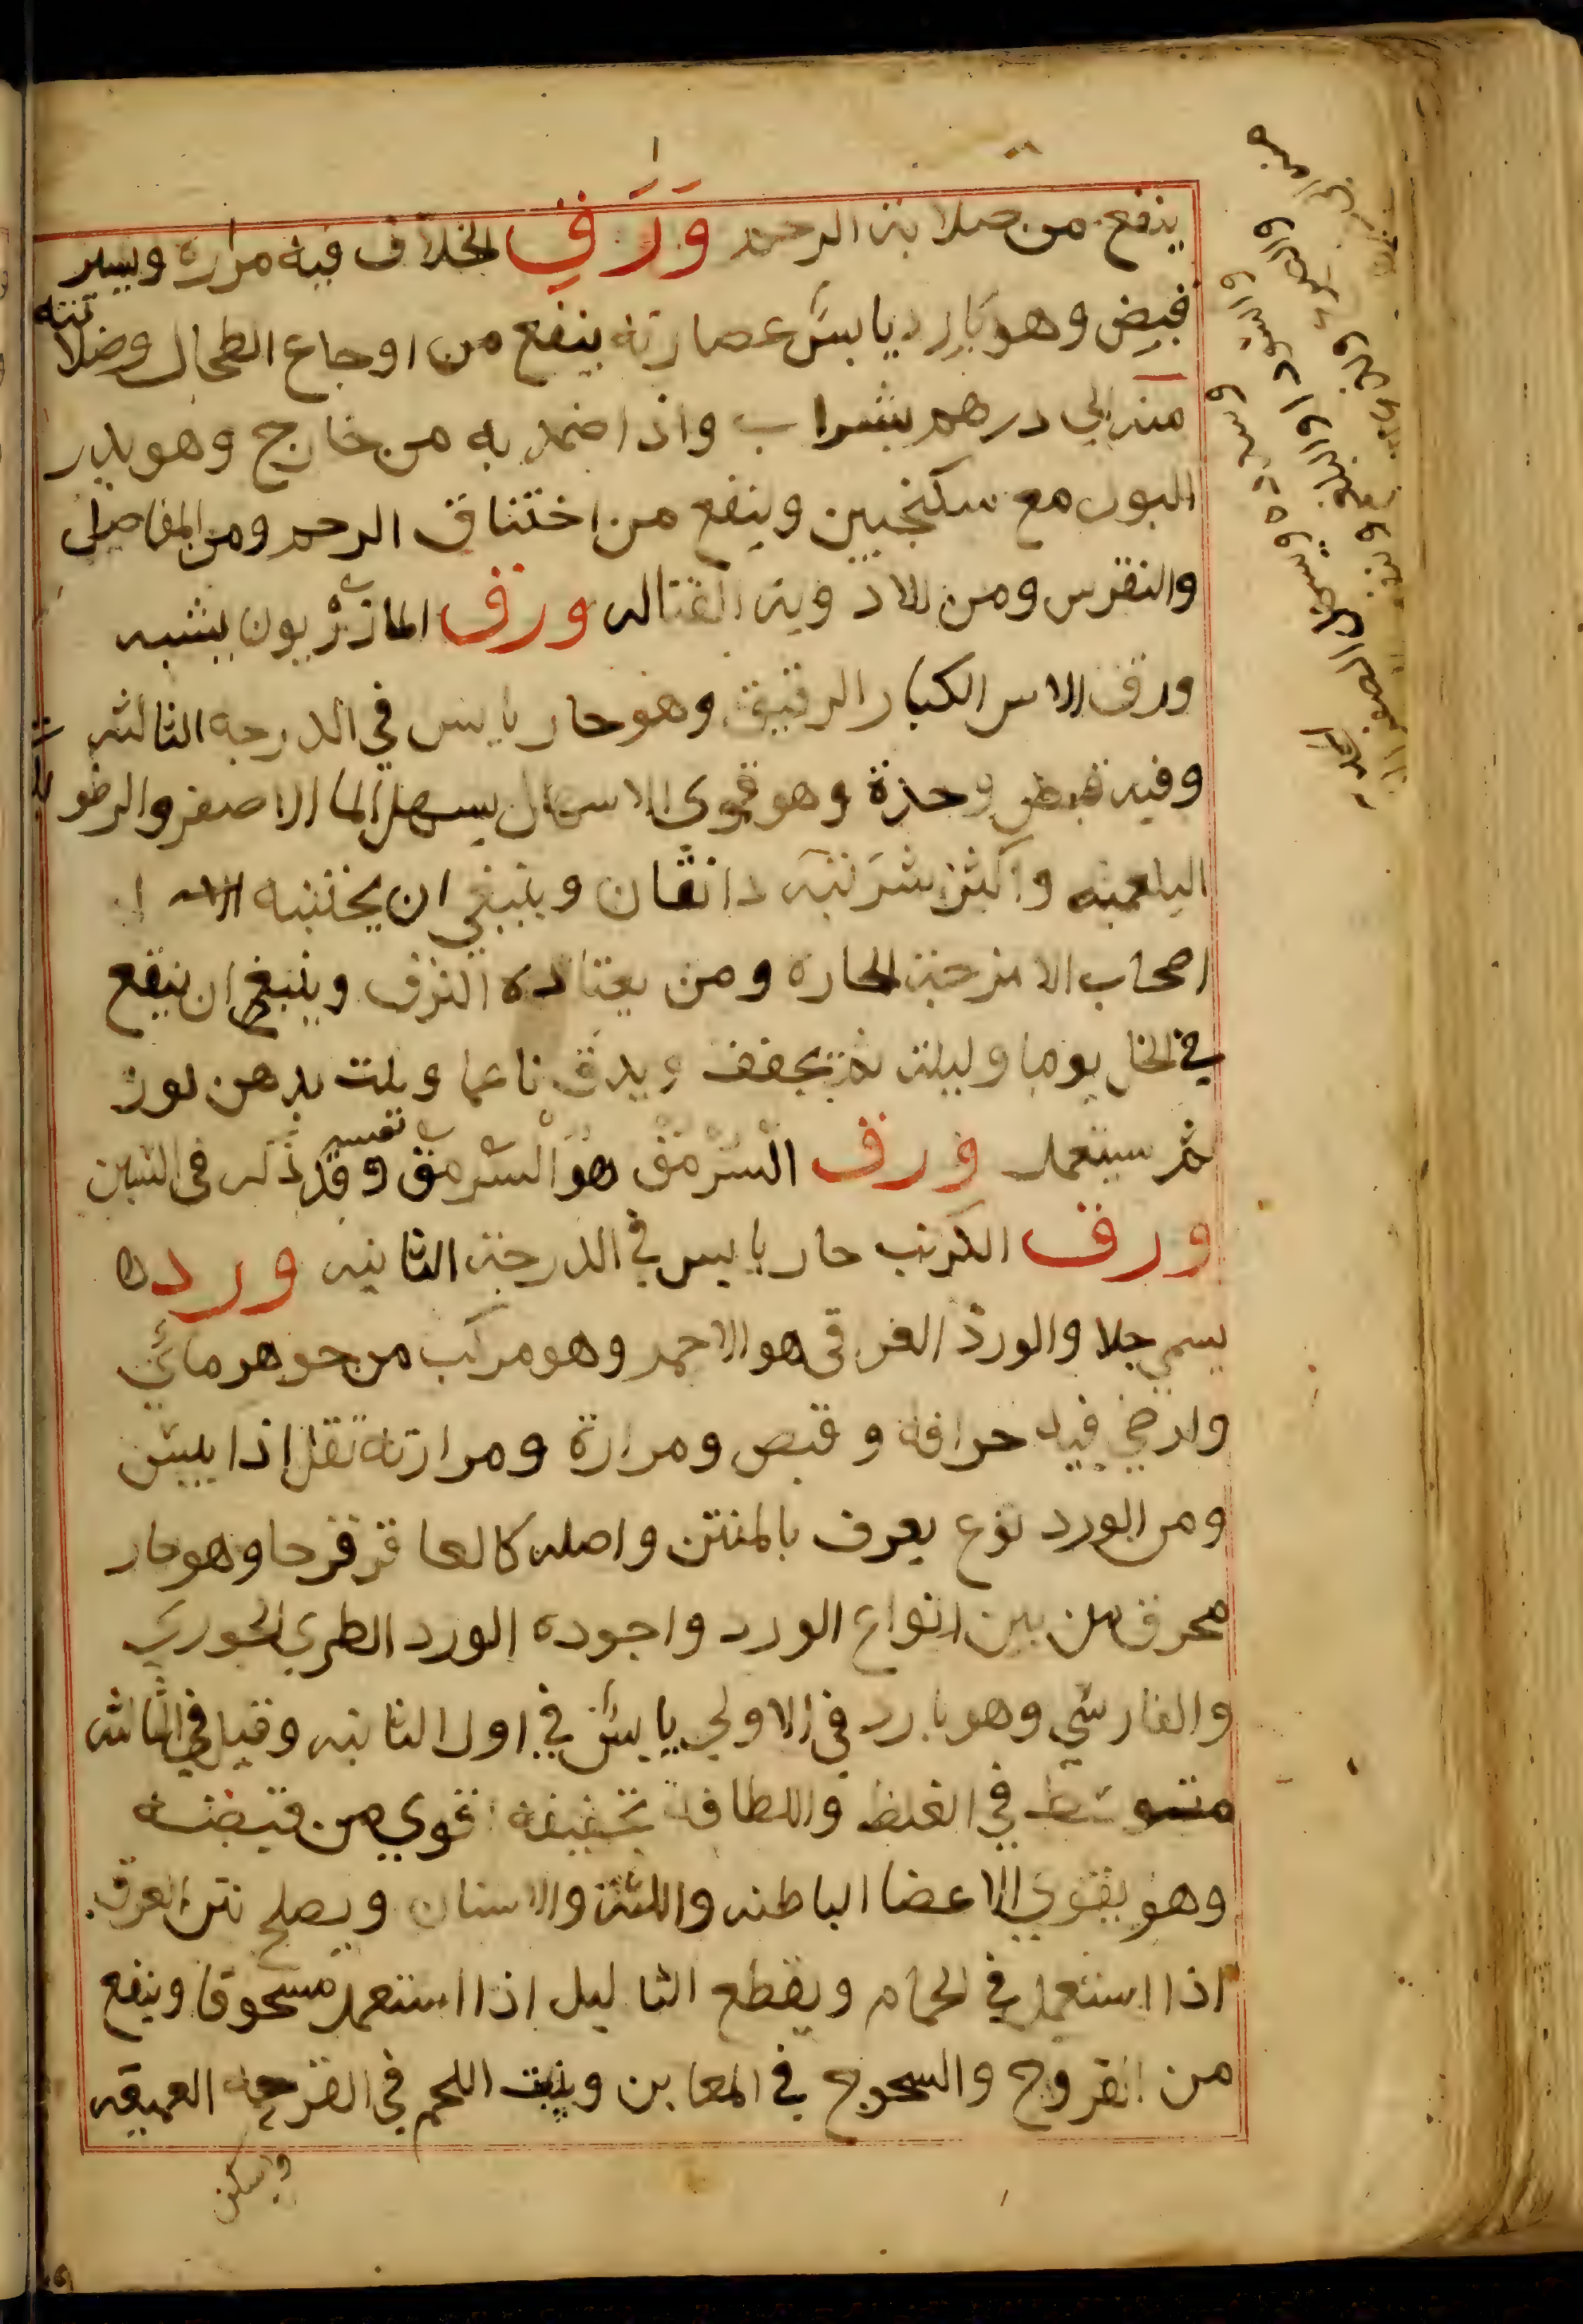 ينفع من صلابة الرحم وَرَقِ الخلاف فيه مراره ويسير
قبض وهو بارد يابس عصارته ينفع من اوجاع الطحال وصلابته
منه الي درهم بشراب واذا ضمد به من خارج وهو يدر
البول مع سكنجبين وينفع من اختناق الرحم ومن المفاصل
والنقرس ومن الادويه القتاله ورق المازريون يشبه
ورق الاس الكبار الرقيق وهو حار يابس في الدرجه الثالثه
وفيه قبض وحدة وهو قوي الاسهال يسهل الما الاصفر والرطو
البلغميه واكثر شربته دانقان وينبغي ان يجتنبه
اصحاب الامزجة الحاره ومن يعتاده النزف وينبغي ان ينقع
في الخل يوما وليلة ثم يجفف ويدق ناعما ويلت بدهن لوز
ثم يستعمل ورق السرمق هو السرمق نفسه وقد ذكر في السين
ورق الكرنب حار يابس في الدرجة الثانيه ورد
يسمي جلا والورد العراقي هو الاحمر وهو مركب من جوهر مائي
وارضي فيه حرافة وقبض ومرارة ومرارته تقل اذا يبس
ومن الورد نوع يعرف بالمنتن واصله كالعاقرقرحا وهو حار
محرق من بين انواع الورد واجوده الورد الطري الجوري
والفارسي وهو بارد في الاولي يابس في اول الثانيه وقيل في الثالثه
متوسط في الغلظ واللطافة تجفيفه اقوي من قبضه
وهو يقوي الاعضا الباطنه واللثة والاسنان ويصلح نتن العرق
اذا استعمل في الحمام ويقطع الثاليل اذا استعمل مسحوقا وينفع
من القروح والسحوج في المغابن وينبت اللحم في القرحه العميقه
ويسكن